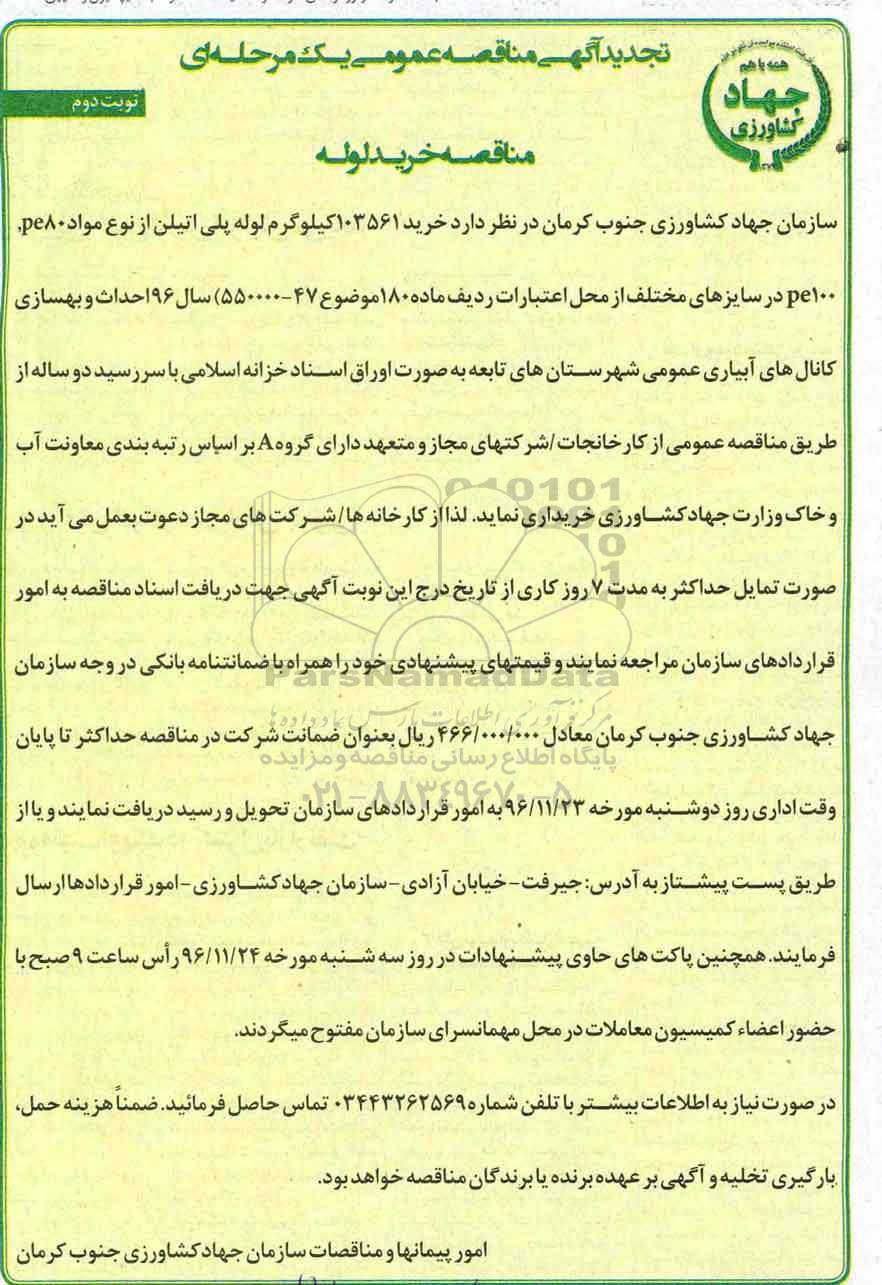 تجدیدآگهی مناقصه عمومی یک مرحله‌ای
همه با هم
جهاد
کشاورزی
نوبت دوم
مناقصه خرید لوله
سازمان جهاد کشاورزی جنوب کرمان در نظر دارد خرید ۱۰۳۵۶۱کیلوگرم لوله پلی اتیلن از نوع مواد pe۸۰،
pe۱۰۰ در سایزهای مختلف از محل اعتبارات ردیف ماده۱۸۰موضوع ۴۷-۵۵۰۰۰۰) سال ۹۶احداث و بهسازی
کانال های آبیاری عمومی شهرستان های تابعه به صورت اوراق اسناد خزانه اسلامی با سررسید دو ساله از
طریق مناقصه عمومی از کارخانجات/شرکتهای مجاز و متعهد دارای گروهA بر اساس رتبه بندی معاونت آب
و خاک وزارت جهادکشاورزی خریداری نماید. لذا از کارخانه ها/شرکت های مجاز دعوت بعمل می آید در
صورت تمایل حداکثر به مدت ۷ روز کاری از تاریخ درج این نوبت آگهی جهت دریافت اسناد مناقصه به امور
قراردادهای سازمان مراجعه نمایند و قیمتهای پیشنهادی خود را همراه با ضمانتنامه بانکی در وجه سازمان
ParsNamadData
جهاد کشاورزی جنوب کرمان معادل ۴۶۶/۰۰۰/۰۰۰ ریال بعنوان ضمانت شرکت در مناقصه حداکثر تا پایان
پایگاه اطلاع رسانی مناقصه و مزایده
وقت اداری روز دوشنبه مورخه ۹۶/۱۱/۲۳به امور قراردادهای سازمان تحویل و رسید دریافت نمایند و یا از
۰۲۱-۸۸۳۴۹۶۷۰-۵
طریق پست پیشتاز به آدرس: جیرفت-خیابان آزادی-سازمان جهادکشاورزی-امور قراردادها ارسال
فرمایند. همچنین پاکت های حاوی پیشنهادات در روز سه شنبه مورخه ۹۶/۱۱/۲۴ رأس ساعت ۹ صبح با
حضور اعضاء کمیسیون معاملات در محل مهمانسرای سازمان مفتوح میگردند.
در صورت نیاز به اطلاعات بیشتر با تلفن شماره۰۳۴۴۳۲۶۲۵۶۹ تماس حاصل فرمائید. ضمناً هزینه حمل،
بارگیری تخلیه و آگهی بر عهده برنده یا برندگان مناقصه خواهد بود.
امور پیمانها و مناقصات سازمان جهادکشاورزی جنوب کرمان